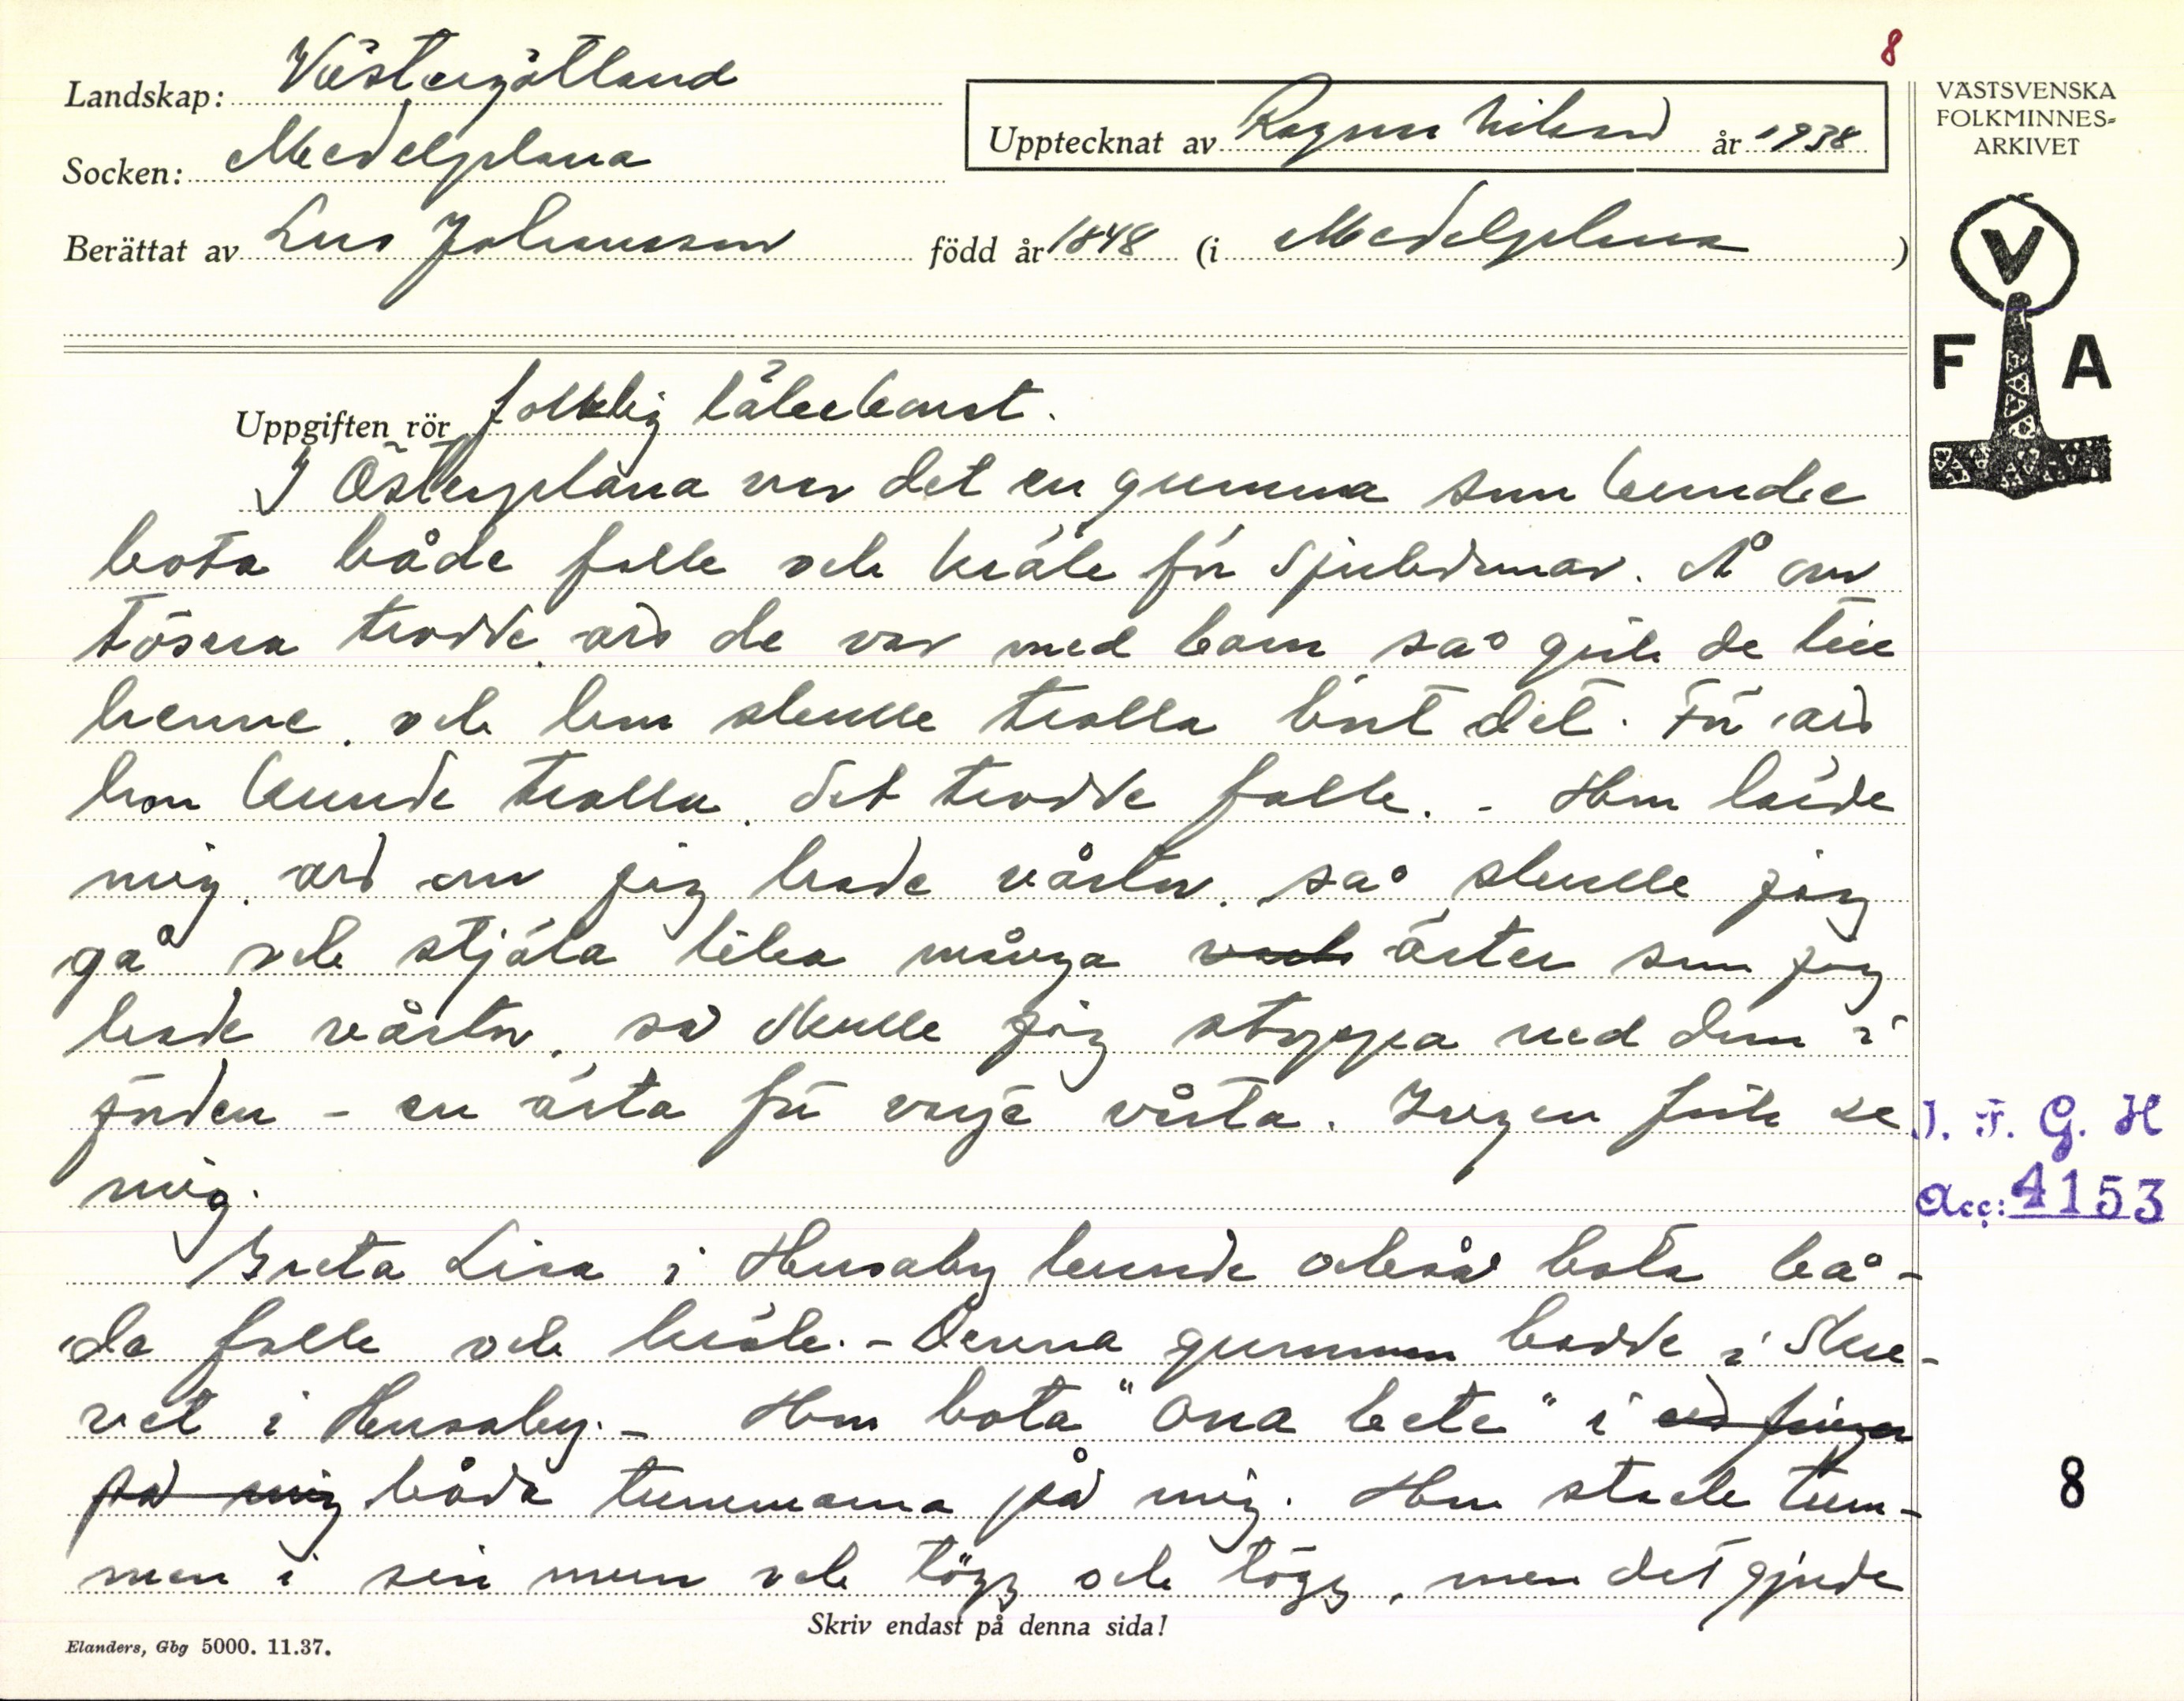 8
Landskap: Västergötland
Socken: Medelplana
Upptecknat av Ragnar Nilsson år 1938
Berättat av Lars Johansson född år 1848 (i Medelplana)
VÄSTSVENSKA
FOLKMINNES-
ARKIVET
V
F A
Uppgiften rör folklig läkekonst.
I Österplana var det en gumma som kunde
bota både folk och kräk för sjukdomar. Å om
tösera trodde, att de var med barn så gick de till
henne, och hon skulle trolla bort det. För att
hon kunde trolla, det trodde folk. - Hon lärde
mig, att om jag hade vårtor, så skulle jag
gå och stjäla lika många ärter som jag
hade vårtor, så skulle jag stoppa ned dem i
jorden - en ärta för varje vårta. Ingen fick se
mig.
Greta Lisa i Husaby kunde också bota bå-
da folk och kräk. - Denna gumman bodde i Skre-
vet i Husaby. - Hon bota "Ona bete" i att fingra
på mig båda tummarna på mig. Hon stack tum-
men i sin mun och tögg och tögg, men det gjorde
J. F. G. H
Acc: 4153
8
Skriv endast på denna sida!
Elanders, Gbg 5000. 11.37.